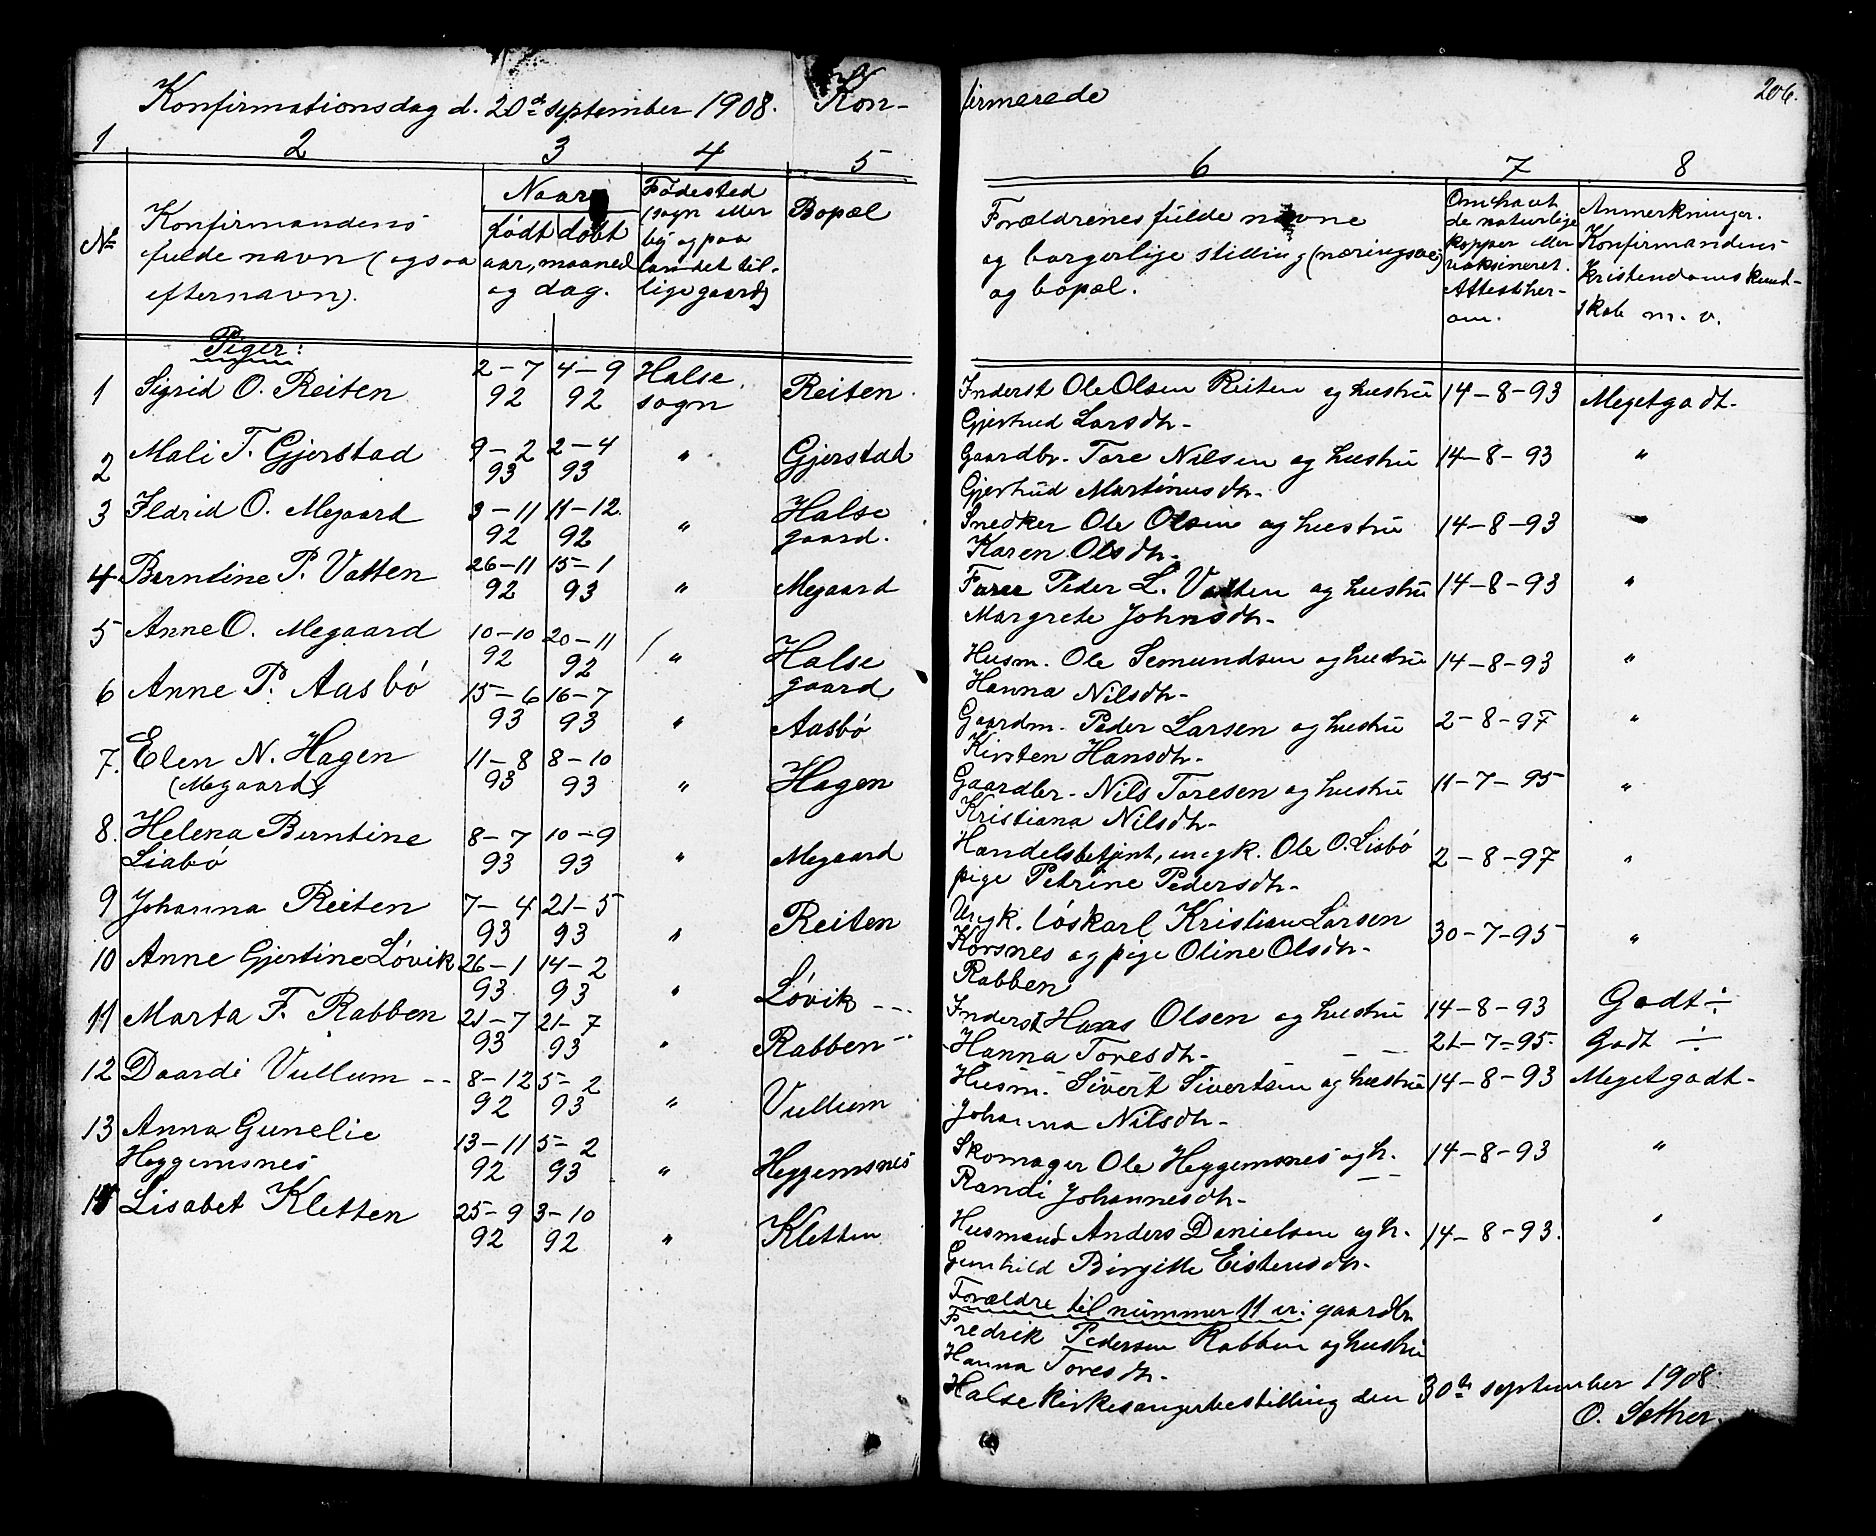 Konfirmationsdag d. 20de september 1908. Kon-
firmerede 206.
1 2 3 4 5 6 7 8
No Konfirmandens
fulde navn (ogsaa
efternavn).
Naar
født døbt
aar, maaned
og dag.
Fødested
(sogn eller
by og paa
landet til-
lige gaard)
Bopæl
Forældrenes fulde navne
og borgerlige stilling (næringsvei)
og bopæl.
Om havt
de naturlige
kopper eller
vaksineret.
Attest her-
om.
Anmerkninger.
Konfirmandens
kristendomskund-
skab m. v.
Piger:
1 Sigrid O. Reiten 2-7 92 4-9 92 Halse sogn Reiten. Inderst Ole Olsen Reiten og hustru 14-8-93 Megetgodt.
Gjertrud Larsdtr.
2 Mali T. Gjerstad 9-2 93 2-4 93 " Gjerstad Gaardbr. Tore Nilsen og hustru 14-8-93 "
Gjertrud Martinusdtr.
3 Ildrid O. Megaard 3-11 92 11-12. 92 " Halse gaard. Snedker Ole Olsen og hustru 14-8-93 "
Karen Olsdtr.
4 Berntine P. Vatten 26-11 92 15-1 93 " Megaard Peder L. Vatten og hustru 14-8-93 "
Margrete Johnsdtr.
5 Anne O. Megaard 10-10 92 20-11 92 " Halse gaard Husm. Ole Semundsen og hustru 14-8-93 "
Hanna Nilsdtr.
6 Anne P. Aasbö 15-6 93 16-7 93 " Aasbö Gaardm. Peder Larsen og hustru 2-8-97 "
Kirsten Hansdtr.
7. Elen N. Hagen
(Megaard) 11-8 93 8-10 93 " Hagen Gaardbr. Nils Toresen og hustru 11-7-95 "
Kristiana Nilsdtr.
8. Helena Berntine
Liabö 8-7 93 10-9 93 " Megaard Handelsbetjent, ungk. Ole O. Liabö 2-8-97 "
pige Petrine Pedersdtr.
9 Johanna Reiten 7-4 93 21-5 93 " Reiten Ungk. löskarl Kristian Larsen
Korsnes og pige Oline Olsdtr. 30-7-95 "
Rabben
10 Anne Gjertine Løvik 26-1 93 14-2 93 " Løvik --- Inderst Hans Olsen og hustru 14-8-93 Godt ÷
11 Marta F. Rabben 21-7 93 21-7 93 " Rabben -- Hanna Toresdtr. — — 21-7-95 Godt ÷
12 Daardi Vullum -- 8-12 92 5-2 93 " Vullum Husm. Sivert Sivertsen og hustru 14-8-93 Megetgodt.
Johanna Nilsdtr.
13 Anna Gunelie
Heggemsnes 13-11 92 5-2 93 " Heggemsnes Skomager Ole Heggemsnes og h. 14-8-93 "
Randi Johannesdtr.
14 Lisabet Kletten 25-9 92 3-10 92 " Kletten Husmand Anders Danielsen og h. 14-8-93. "
Gunhild Birgitte Eistensdtr.
Forældre til nummer 11 er: gaardbr.
Fredrik Pedersen Rabben og hustru
Hanna Toresdtr.
Halse kirkesangerbestilling den 30te september 1908.
O. Sæther.